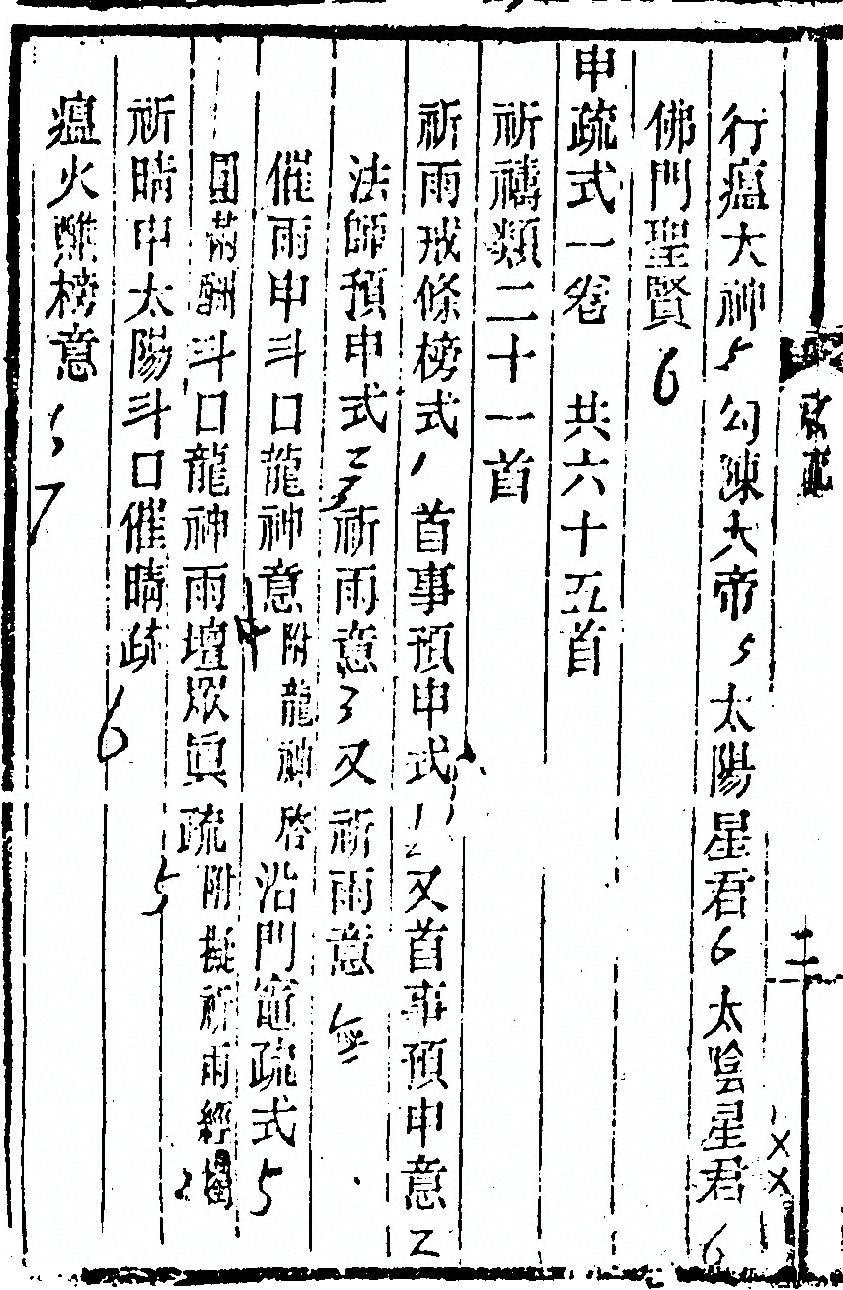 行瘟大神 5 勾陳大帝 5 太陽星君 6 太陰星君 6
佛門聖賢 6
申疏式一卷 共六十五首
祈禱類二十一首
祈雨戒條榜式 1 首事預申式 1 2 又首事預申意 2
法師預申式 2 3 祈雨意 3 又祈雨意 無
催雨申斗口龍神意 4 附龍神啓 沿門竈疏式 5
圓滿酬斗口龍神雨壇眾眞疏 5 附擬祈雨經
祈晴申太陽斗口催晴疏 6
瘟火醮榜意 7
二